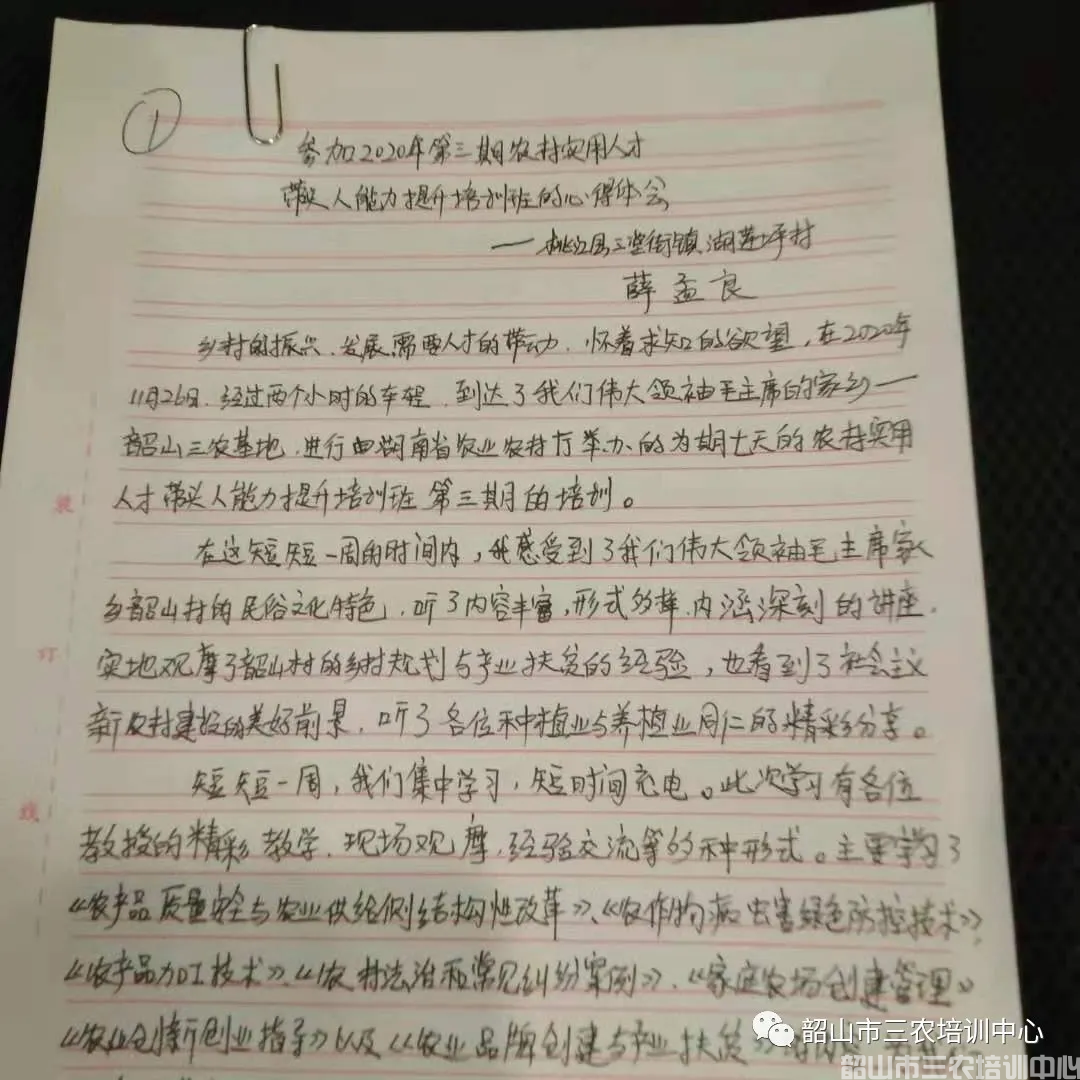 ①
参加2020年第三期农村实用人才
带头人能力提升培训班的心得体会
——桃江县三堂街镇湖莲坪村
薛孟良
乡村的振兴、发展需要人才的带动,怀着求知的欲望,在2020年
11月26日,经过两个小时的车程,到达了我们伟大领袖毛主席的家乡——
韶山三农基地,进行由湖南省农业农村厅举办的为期七天的农村实用
人才带头人能力提升培训班第三期的培训。
在这短短一周的时间内,我感受到了我们伟大领袖毛主席家
乡韶山村的民俗文化特色,听了内容丰富,形式多样,内涵深刻的讲座,
实地观摩了韶山村的乡村规划与产业扶贫的经验,也看到了社会主义
新农村建设的美好前景,听了各位种植业与养植业同仁的精彩分享。
短短一周,我们集中学习,短时间充电。此次学习有各位
教授的精彩教学、现场观摩,经验交流等多种形式。主要学习了
《农产品质量安全与农业供给侧结构性改革》、《农作物病虫害绿色防控技术》,
《农产品加工技术》、《农村法治和常见纠纷案例》、《家庭农场创建管理》
《农业创新创业指导》以及《农业品牌创建与产业扶贫》
装
订
线
韶山市三农培训中心
韶山市三农培训中心